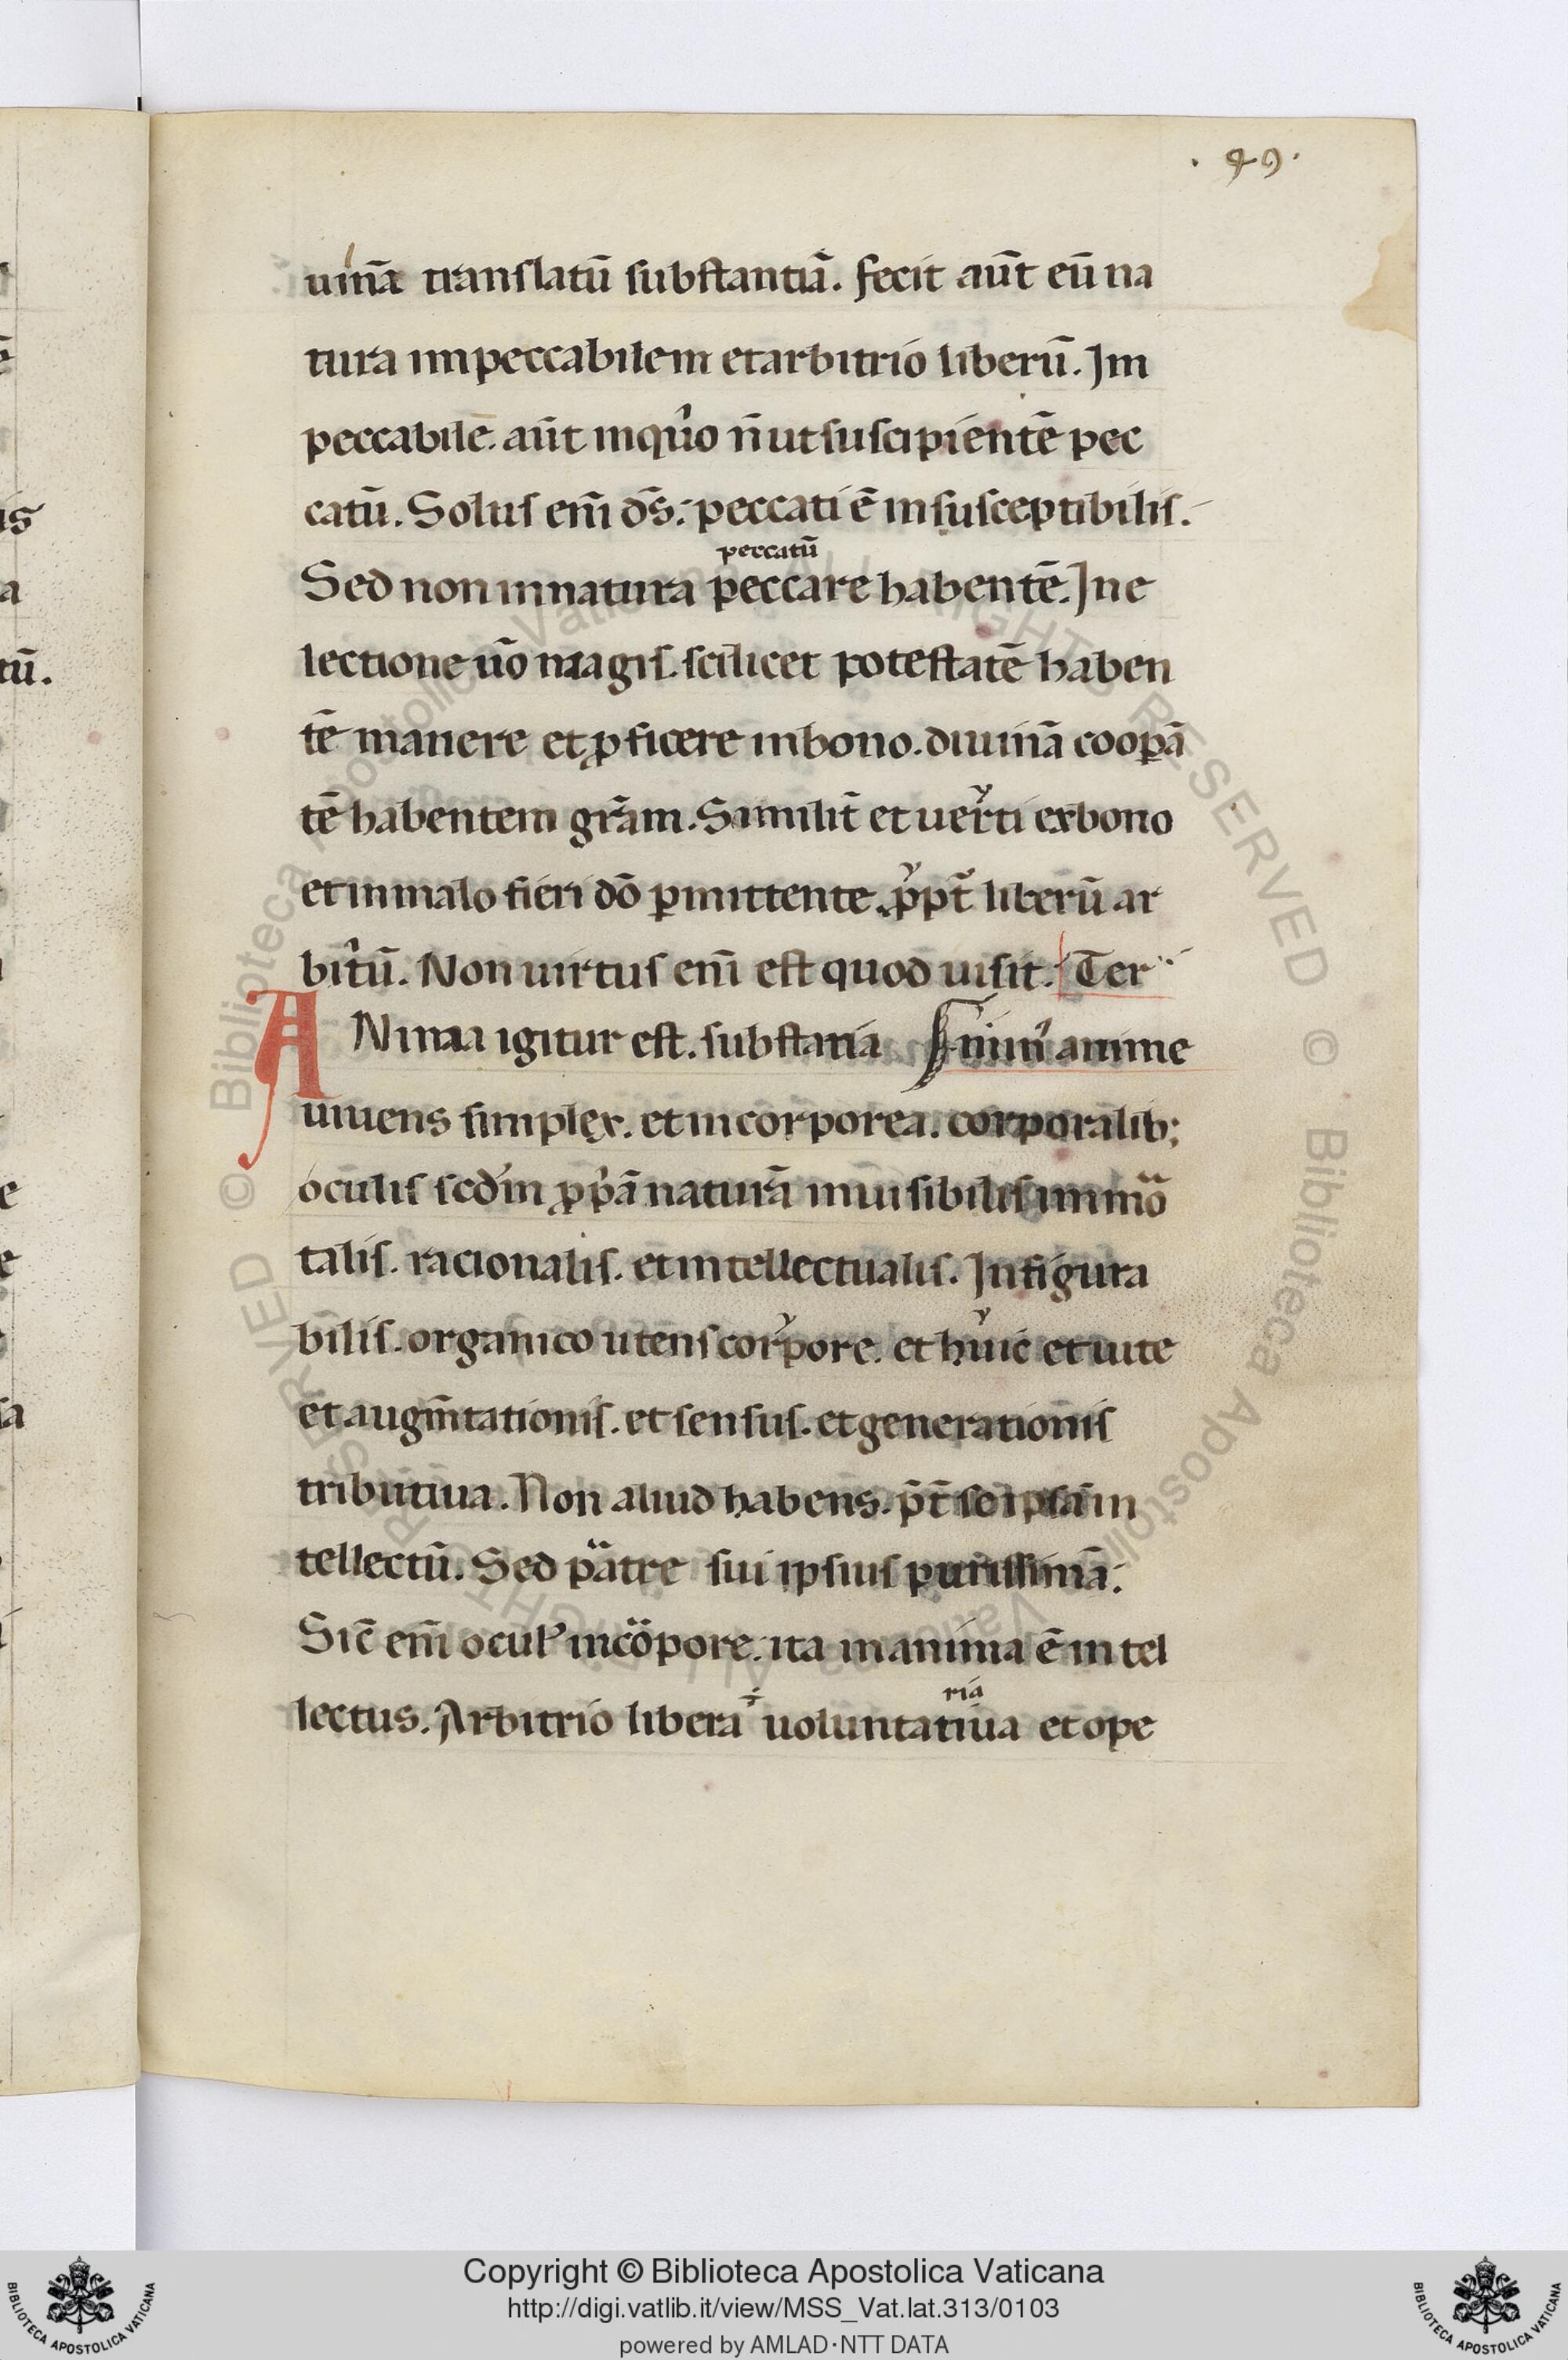 . 49 .
uinā translatū substantiā. fecit aūt eū na
tura impeccabilem et arbitrio liberū. Im
peccabilē. aūt inquio n̄ ut suscipientē pec
catū. Solus enī d̄s. peccati ē insusceptibilis.
peccatū
Sed non in natura peccare habentē. In e
lectione ūo magis. scilicet potestatē haben
tē manere et ꝓficere in bono. diuinā coopā
tē habentem grām. Similit̄ et uerti ex bono
et in malo fieri dō pmittente. ppt̄ liberū ar
bitū. Non uirtus enī est quod ui sit. Ter
ANima igitur est. substatia anime
uiuens simplex. et incorporea. corporalib;
oculis scdm ꝓpā naturā inuisibilis immo
talis. racionalis. et intellectualis. Infigura
bilis. organico utens corpore. et huic et uite
et augm̄tationis. et sensus. et generationis
tributiua. Non aliud habens. pt̄ se ipsā in
tellectū. Sed patre sui ipsius purissimā.
Sic̄ enī ocul' in copore. ita in anima ē intel
ria
lectus. Arbitrio libera uoluntatiua et ope
Copyright © Biblioteca Apostolica Vaticana
http://digi.vatlib.it/view/MSS_Vat.lat.313/0103
powered by AMLAD·NTT DATA